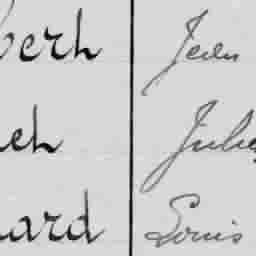 berh Jean
eh Jules
ard Louis